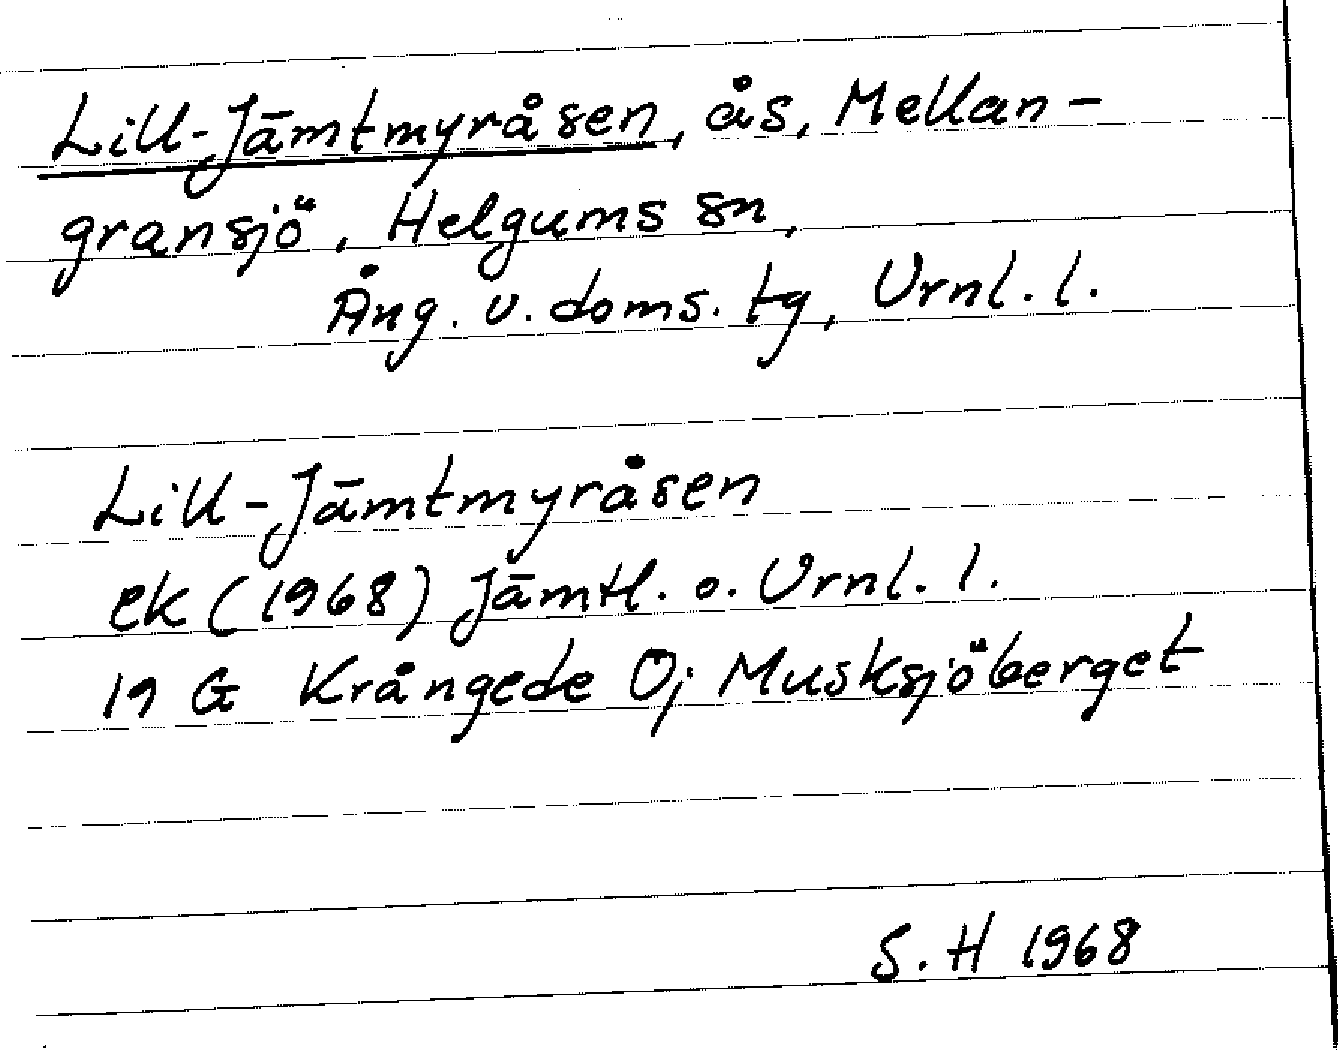 Lill-Jämtmyråsen, ås, Mellan-
gransjö, Helgums sn,
Ång. v. doms. tg, Vrnl. l.
Lill-Jämtmyråsen
ek (1968) Jämtl. o. Vrnl. l.
19 G Krångede Oj Musksjöberget
S. H 1968